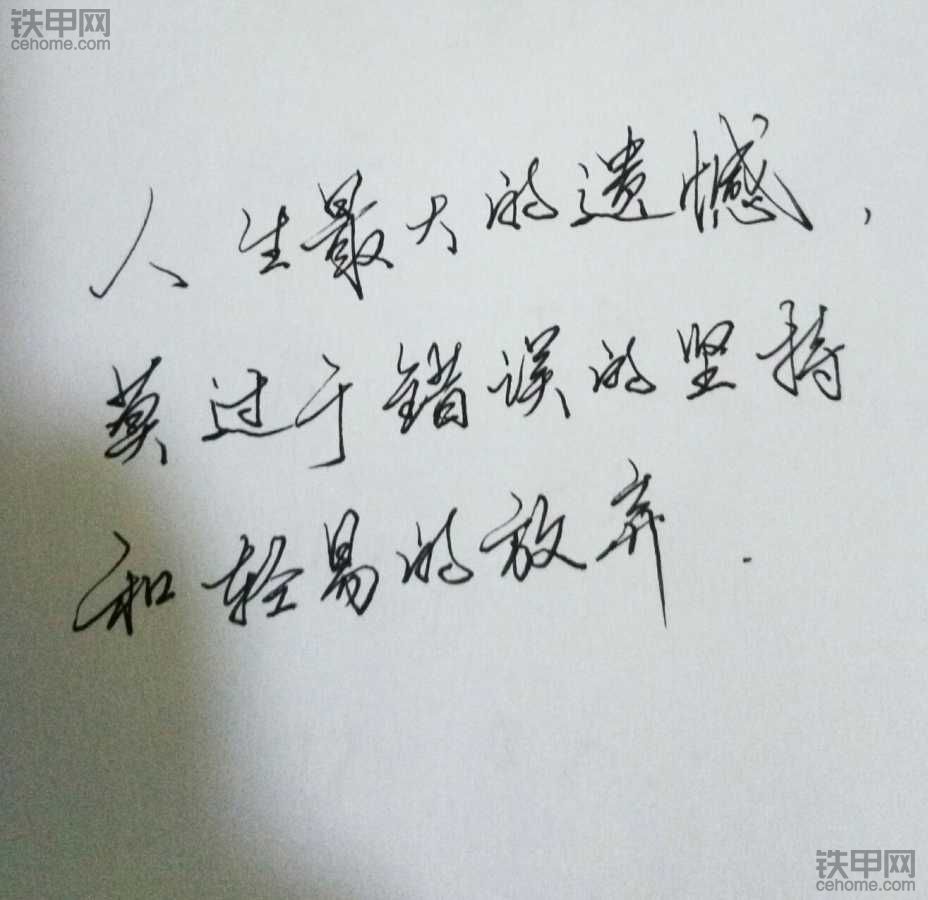 铁甲网
cehome.com
人生最大的遗憾，
莫过于错误的坚持
和轻易的放弃.
铁甲网
cehome.com